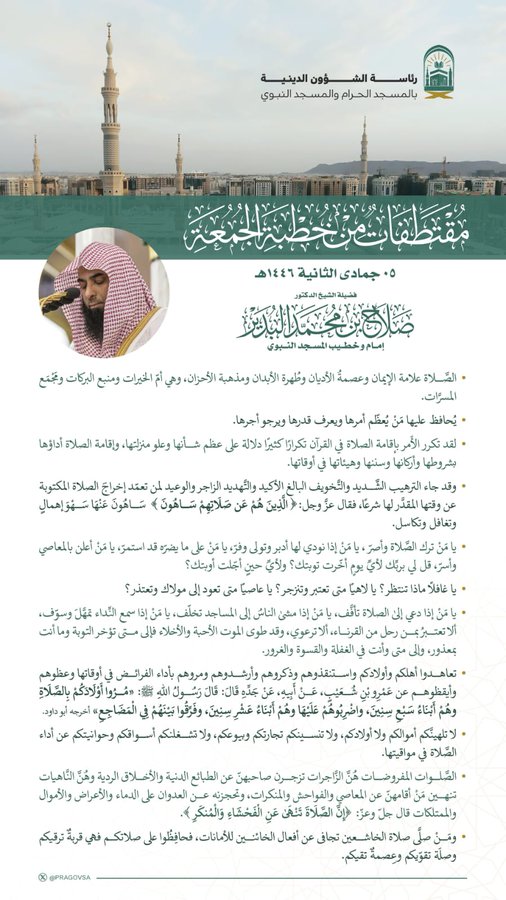 رئاسة الشؤون الدينية
بالمسجد الحرام والمسجد النبوي
مُقتَطَفَاتٌ مِنْ خُطبَةِ الجُمُعَةِ
٠٥ جمادى الثانية ١٤٤٦هـ
فضيلة الشيخ الدكتور
صلاح بن محمد البدير
إمام وخطيب المسجد النبوي
• الصَّلاة علامة الإيمان وعصمةُ الأديان وطُهرة الأبدان ومذهبة الأحزان، وهي أمّ الخيرات ومنبع البركات ومجْمَع
المسرَّات.
• يُحافظ عليها مَنْ يُعظّم أمرها ويعرف قدرها ويرجو أجرها.
• لقد تكرر الأَمر بإقامة الصلاة في القرآن تكرارًا كثيرًا دلالة على عظم شأنها وعلو منزلتها، وإقامة الصلاة أداؤها
بشروطها وأركانها وسننها وهيئاتها في أوقاتها.
• وقد جاء الترهيب الشَّديد والتَّخويف البالغ الأكيد والتَّهديد الزاجر والوعيد لمن تعمّد إخراجَ الصلاة المكتوبة
عن وقتها المقدَّر لها شرعًا، فقال عزَّ وجل: ﴿الَّذِينَ هُمْ عَن صَلَاتِهِمْ سَاهُونَ﴾ سَاهُونَ عَنْهَا سَهْوَ إهمالٍ
وتغافل وتكاسل.
• يا مَنْ ترك الصَّلاة وأصرّ، يا مَنْ إذا نودي لها أدبر وتولى وفرّ، يا مَنْ على ما يضرّه قد استمرّ، يا مَنْ أعلن بالمعاصي
وأسرّ، قل لي بربِّك لأيِّ يومٍ أخّرت توبتك؟ ولأيِّ حينٍ أجّلت أوبتك؟
• يا غافلًا ماذا تنتظر؟ يا لاهيًا متى تعتبر وتنزجر؟ يا عاصيًا متى تعود إلى مولاك وتعتذر؟
• يا مَنْ إذا دعي إلى الصلاة تأفَّف، يا مَنْ إذا مشى الناسُ إلى المساجد تخلّف، يا مَنْ إذا سمع النِّداء تمهَّل وسوّف،
ألا تعتبرُ بمن رحل من القرناء، ألا ترعوي، وقد طوى الموت الأحبة والأخلاء فإلى متى تؤخر التوبة وما أنت
بمعذور، وإلى متى وأنت في الغفلة والقسوة والغرور.
• تعاهدوا أهلكم وأولادكم واستنقذوهم وذكروهم وأرشدوهم ومروهم بأداء الفرائض في أوقاتها وعظوهم
وأيقظوهم عن عمرو بْنِ شُعَيْبٍ، عَنْ أَبِيهِ، عَنْ جَدِّهِ قَالَ: قَالَ رَسُولُ اللهِ ﷺ: «مُرُوا أَوْلَادَكُمْ بِالصَّلَاةِ
وَهُمْ أَبْنَاءُ سَبْعِ سِنِينَ، وَاضْرِبُوهُمْ عَلَيْهَا وَهُمْ أَبْنَاءُ عَشْرِ سِنِينَ، وَفَرِّقُوا بَيْنَهُمْ فِي الْمَضَاجِعِ» أخرجه أبو داود.
• لا تلهينَّكم أموالكم ولا أولادكم، ولا تنسينكم تجارتكم وبيوعكم، ولا تشغلنكم أسواقكم وحوانيتكم عن أداء
الصَّلاة في مواقيتها.
• الصَّلوات المفروضات هُنَّ الزَّاجرات تزجرن صاحبهنّ عن الطبائع الدنية والأخلاق الردية وهُنَّ النَّاهيات
تنهين مَنْ أقامهنّ عن المعاصي والفواحش والمنكرات، وتحجزنه عن العدوان على الدماء والأعراض والأموال
والممتلكات قال جلّ وعزّ: ﴿إِنَّ الصَّلَاةَ تَنْهَىٰ عَنِ الْفَحْشَاءِ وَالْمُنكَرِ﴾.
• ومَنْ صلَّى صلاة الخاشعين تجافى عن أفعال الخائنين للأمانات، فحافِظُوا على صلاتكم فهي قربةٌ ترقيكم
وصلَة تقوّيكم وعصمةٌ تقيكم.
@PRAGOVSA